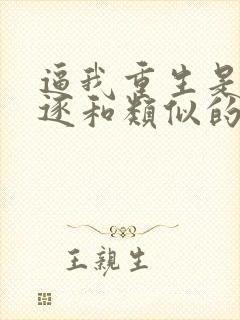 逼我重生是
逐和類似的
王親生